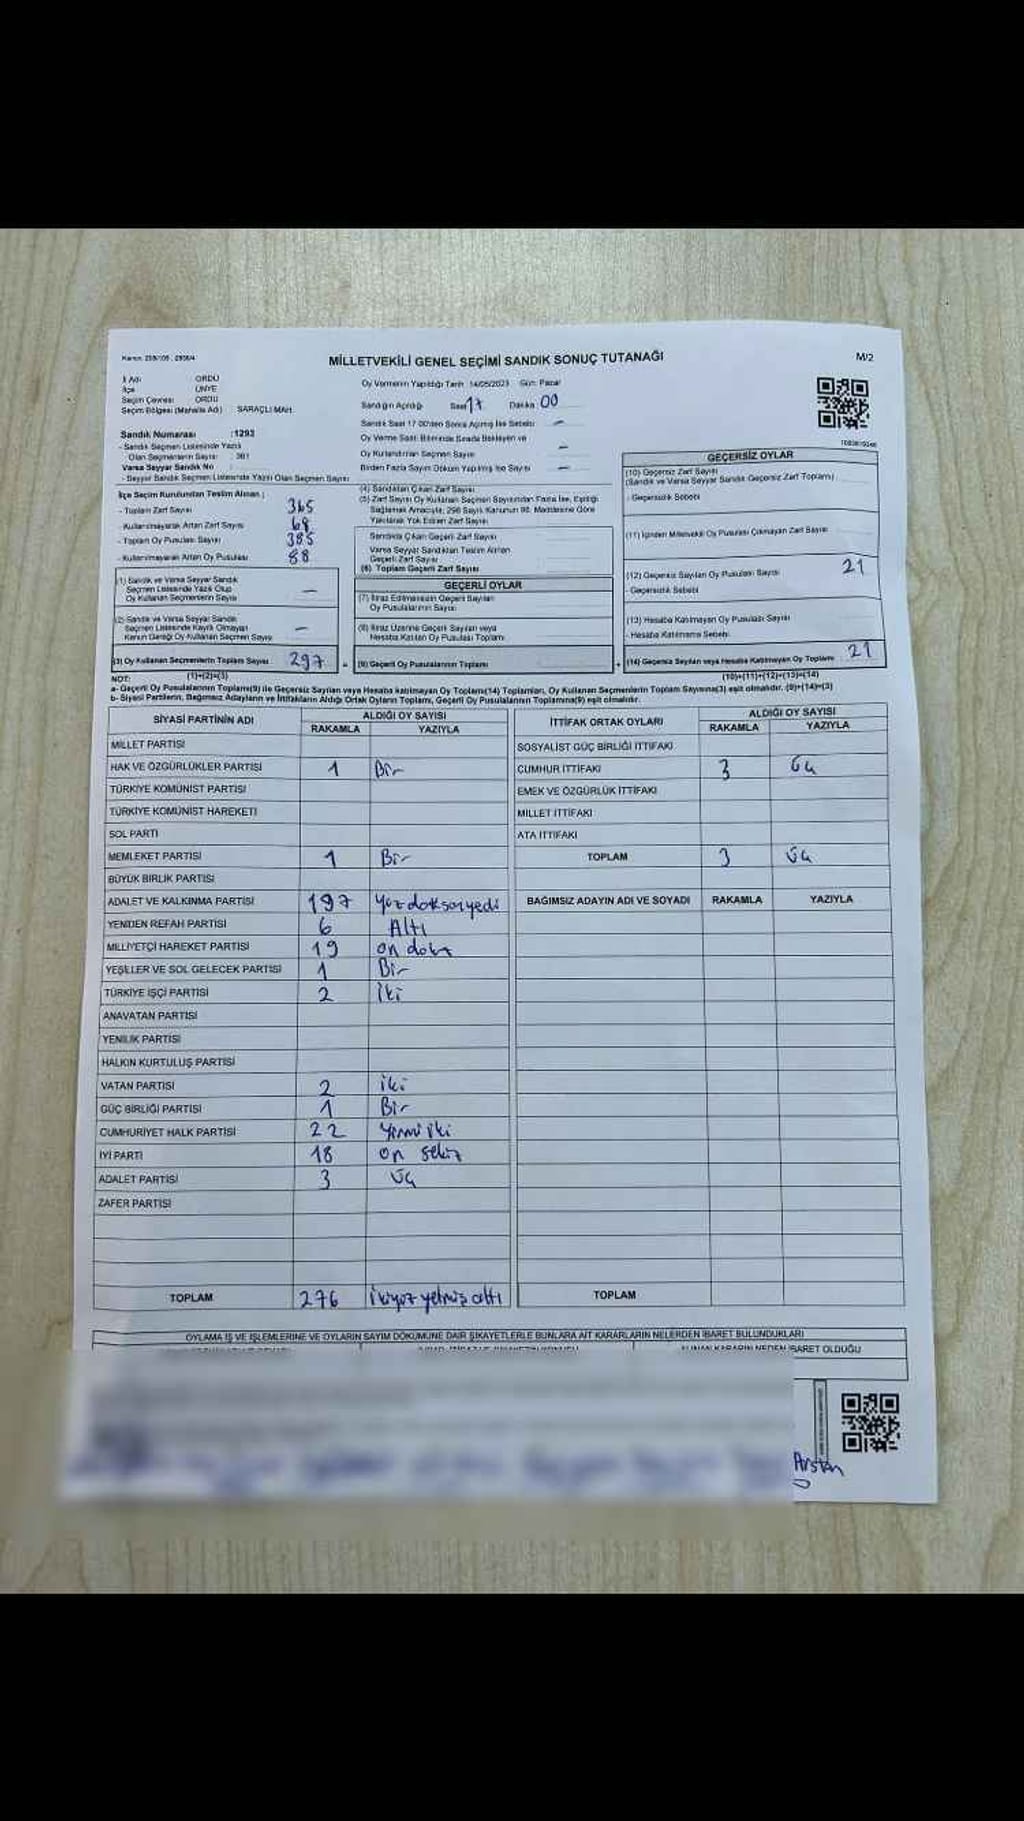 Kanun: 298/105 , 2839/4
MİLLETVEKİLİ GENEL SEÇİMİ SANDIK SONUÇ TUTANAĞI
M/2
İl Adı ORDU
İlçe ÜNYE
Seçim Çevresi ORDU
Seçim Bölgesi (Mahalle Adı) SARAÇLI MAH.
Oy Vermenin Yapıldığı Tarih 14/05/2023 Gün: Pazar
Sandığın Açıldığı Saat 17 Dakika 00
Sandık Saat 17:00'den Sonra Açılmış İse Sebebi —
Oy Verme Saati Bitiminde Sırada Bekleyen ve
Oy Kullandırılan Seçmen Sayısı —
Birden Fazla Sayım Döküm Yapılmış İse Sayısı —
Sandık Numarası :1293
- Sandık Seçmen Listesinde Yazılı
Olan Seçmenlerin Sayısı : 361
Varsa Seyyar Sandık No :
- Seyyar Sandık Seçmen Listesinde Yazılı Olan Seçmen Sayısı
İlçe Seçim Kurulundan Teslim Alınan ;
- Toplam Zarf Sayısı 365
- Kullanılmayarak Artan Zarf Sayısı 68
- Toplam Oy Pusulası Sayısı 385
- Kullanılmayarak Artan Oy Pusulası 88
(1) Sandık ve Varsa Seyyar Sandık
Seçmen Listesinde Yazılı Olup
Oy Kullanan Seçmenlerin Sayısı —
(2) Sandık ve Varsa Seyyar Sandık
Seçmen Listesinde Kayıtlı Olmayan
Kanun Gereği Oy Kullanan Seçmen Sayısı —
(3) Oy Kullanan Seçmenlerin Toplam Sayısı 297 =
(1)+(2)=(3)
(4) Sandıktan Çıkan Zarf Sayısı
(5) Zarf Sayısı Oy Kullanan Seçmen Sayısından Fazla İse, Eşitliği
Sağlamak Amacıyla, 298 Sayılı Kanunun 98. Maddesine Göre
Yakılarak Yok Edilen Zarf Sayısı
Sandıkta Çıkan Geçerli Zarf Sayısı
Varsa Seyyar Sandıktan Teslim Alınan
Geçerli Zarf Sayısı
(6) Toplam Geçerli Zarf Sayısı
GEÇERLİ OYLAR
(7) İtiraz Edilmeksizin Geçerli Sayılan
Oy Pusulalarının Sayısı
(8) İtiraz Üzerine Geçerli Sayılan veya
Hesaba Katılan Oy Pusulası Toplamı
(9) Geçerli Oy Pusulalarının Toplamı +
GEÇERSİZ OYLAR
(10) Geçersiz Zarf Sayısı
(Sandık ve Varsa Seyyar Sandık Geçersiz Zarf Toplamı)
- Geçersizlik Sebebi
(11) İçinden Milletvekili Oy Pusulası Çıkmayan Zarf Sayısı
(12) Geçersiz Sayılan Oy Pusulası Sayısı 21
- Geçersizlik Sebebi
(13) Hesaba Katılmayan Oy Pusulası Sayısı
- Hesaba Katılmama Sebebi
(14) Geçersiz Sayılan veya Hesaba Katılmayan Oy Toplamı 21
(10)+(11)+(12)+(13)=(14)
NOT:
a- Geçerli Oy Pusulalarının Toplamı(9) ile Geçersiz Sayılan veya Hesaba katılmayan Oy Toplamı(14) Toplamları, Oy Kullanan Seçmenlerin Toplam Sayısına(3) eşit olmalıdır. (9)+(14)=(3)
b- Siyasi Partilerin, Bağımsız Adayların ve İttifakların Aldığı Ortak Oyların Toplamı, Geçerli Oy Pusulalarının Toplamına(9) eşit olmalıdır.
SİYASİ PARTİNİN ADI ALDIĞI OY SAYISI
RAKAMLA YAZIYLA
MİLLET PARTİSİ
HAK VE ÖZGÜRLÜKLER PARTİSİ 1 Bir
TÜRKİYE KOMÜNİST PARTİSİ
TÜRKİYE KOMÜNİST HAREKETİ
SOL PARTİ
MEMLEKET PARTİSİ 1 Bir
BÜYÜK BİRLİK PARTİSİ
ADALET VE KALKINMA PARTİSİ 197 Yüz doksanyedi
YENİDEN REFAH PARTİSİ 6 Altı
MİLLİYETÇİ HAREKET PARTİSİ 19 on dokuz
YEŞİLLER VE SOL GELECEK PARTİSİ 1 Bir
TÜRKİYE İŞÇİ PARTİSİ 2 İki
ANAVATAN PARTİSİ
YENİLİK PARTİSİ
HALKIN KURTULUŞ PARTİSİ
VATAN PARTİSİ 2 iki
GÜÇ BİRLİĞİ PARTİSİ 1 Bir
CUMHURİYET HALK PARTİSİ 22 Yirmi iki
İYİ PARTİ 18 on sekiz
ADALET PARTİSİ 3 Üç
ZAFER PARTİSİ
TOPLAM 276 ikiyüz yetmiş altı
İTTİFAK ORTAK OYLARI ALDIĞI OY SAYISI
RAKAMLA YAZIYLA
SOSYALİST GÜÇ BİRLİĞİ İTTİFAKI
CUMHUR İTTİFAKI 3 Üç
EMEK VE ÖZGÜRLÜK İTTİFAKI
MİLLET İTTİFAKI
ATA İTTİFAKI
TOPLAM 3 Üç
BAĞIMSIZ ADAYIN ADI VE SOYADI RAKAMLA YAZIYLA
TOPLAM
OYLAMA İŞ VE İŞLEMLERİNE VE OYLARIN SAYIM DÖKÜMÜNE DAİR ŞİKAYETLERLE BUNLARA AİT KARARLARIN NELERDEN İBARET BULUNDUKLARI
ALINAN KARARIN NEDEN İBARET OLDUĞU
Arslan